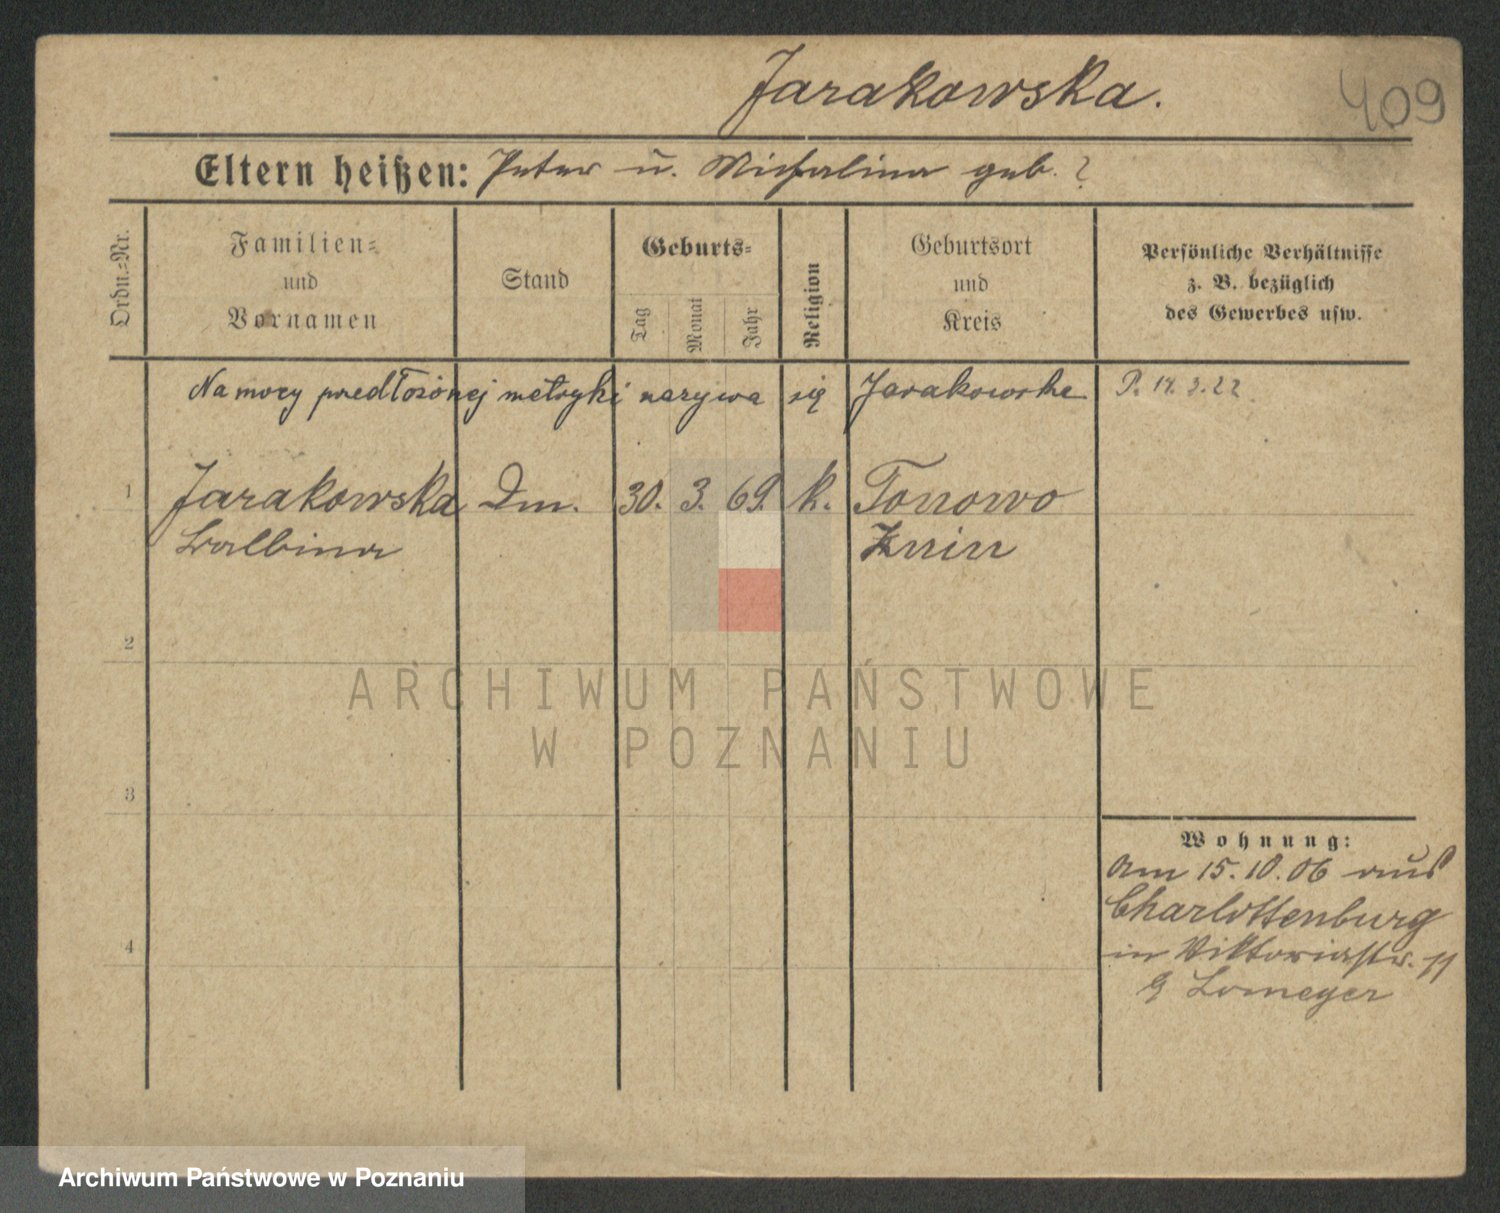 Jarakowska.
409
Eltern heißen: Peter u. Michalina geb. ?
Ordn.-Nr.
Familien-
und
Vornamen
Stand
Geburts-
Tag
Monat
Jahr
Religion
Geburtsort
und
Kreis
Persönliche Verhältnisse
z. B. bezüglich
des Gewerbes usw.
Na mocy predłożonej metryki nazywa się Jarakowska P. 14. 3. 22
1 Jarakowska Dm. 30. 3. 69. k. Tonowo
Balbina Znin
2
3
4
Wohnung:
Am 15. 10. 06 aus
Charlottenburg
in Viktoriastr. 11
Lomeyer
ARCHIWUM PAŃSTWOWE
W POZNANIU
Archiwum Państwowe w Poznaniu